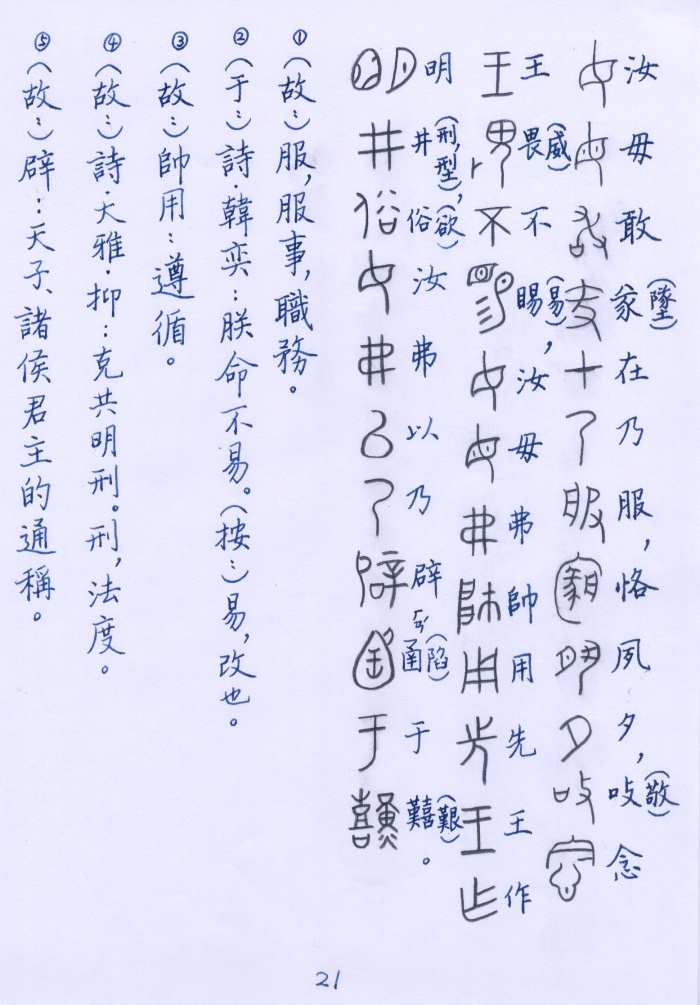 汝毋敢家(墜)在乃服，恪夙夕，㕛(敬)念
王畏(威)不賜(易)，汝毋弗帥用先王作
明井(刑,型)，俗(欲)汝弗以乃辟圅(陷)于囏(艱)。
①(故：)服，服事，職務。
②(于：)詩·韓奕：朕命不易。(按：)易，改也。
③(故：)帥用：遵循。
④(故：)詩·大雅·抑：克共明刑。刑，法度。
⑤(故：)辟：天子、諸侯君主的通稱。
21